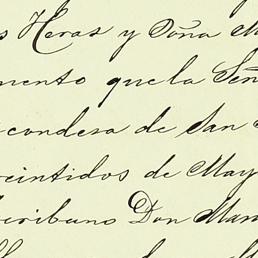 s Heras y Doña M
mento que la Señ
condesa de San
reintidos de May
scribano Don Man